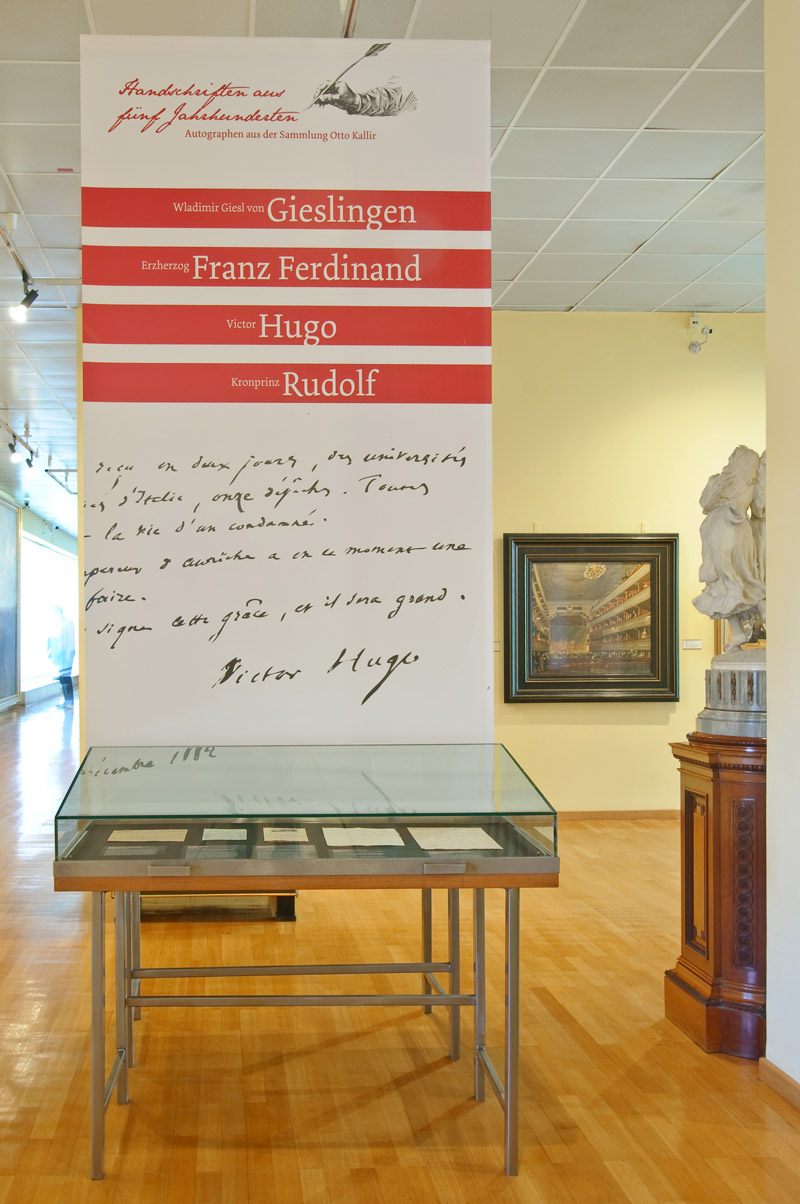 Handschriften aus
fünf Jahrhunderten
Autographen aus der Sammlung Otto Kallir
Wladimir Giesl von Gieslingen
Erzherzog Franz Ferdinand
Victor Hugo
Kronprinz Rudolf
reçu en deux jours, des universités
d'Italie, onze dépêches. Toutes
la vie d'un condamné.
d'autriche a en ce moment une
faire.
signe cette grâce, et il sera grand.
Victor Hugo
décembre 1882